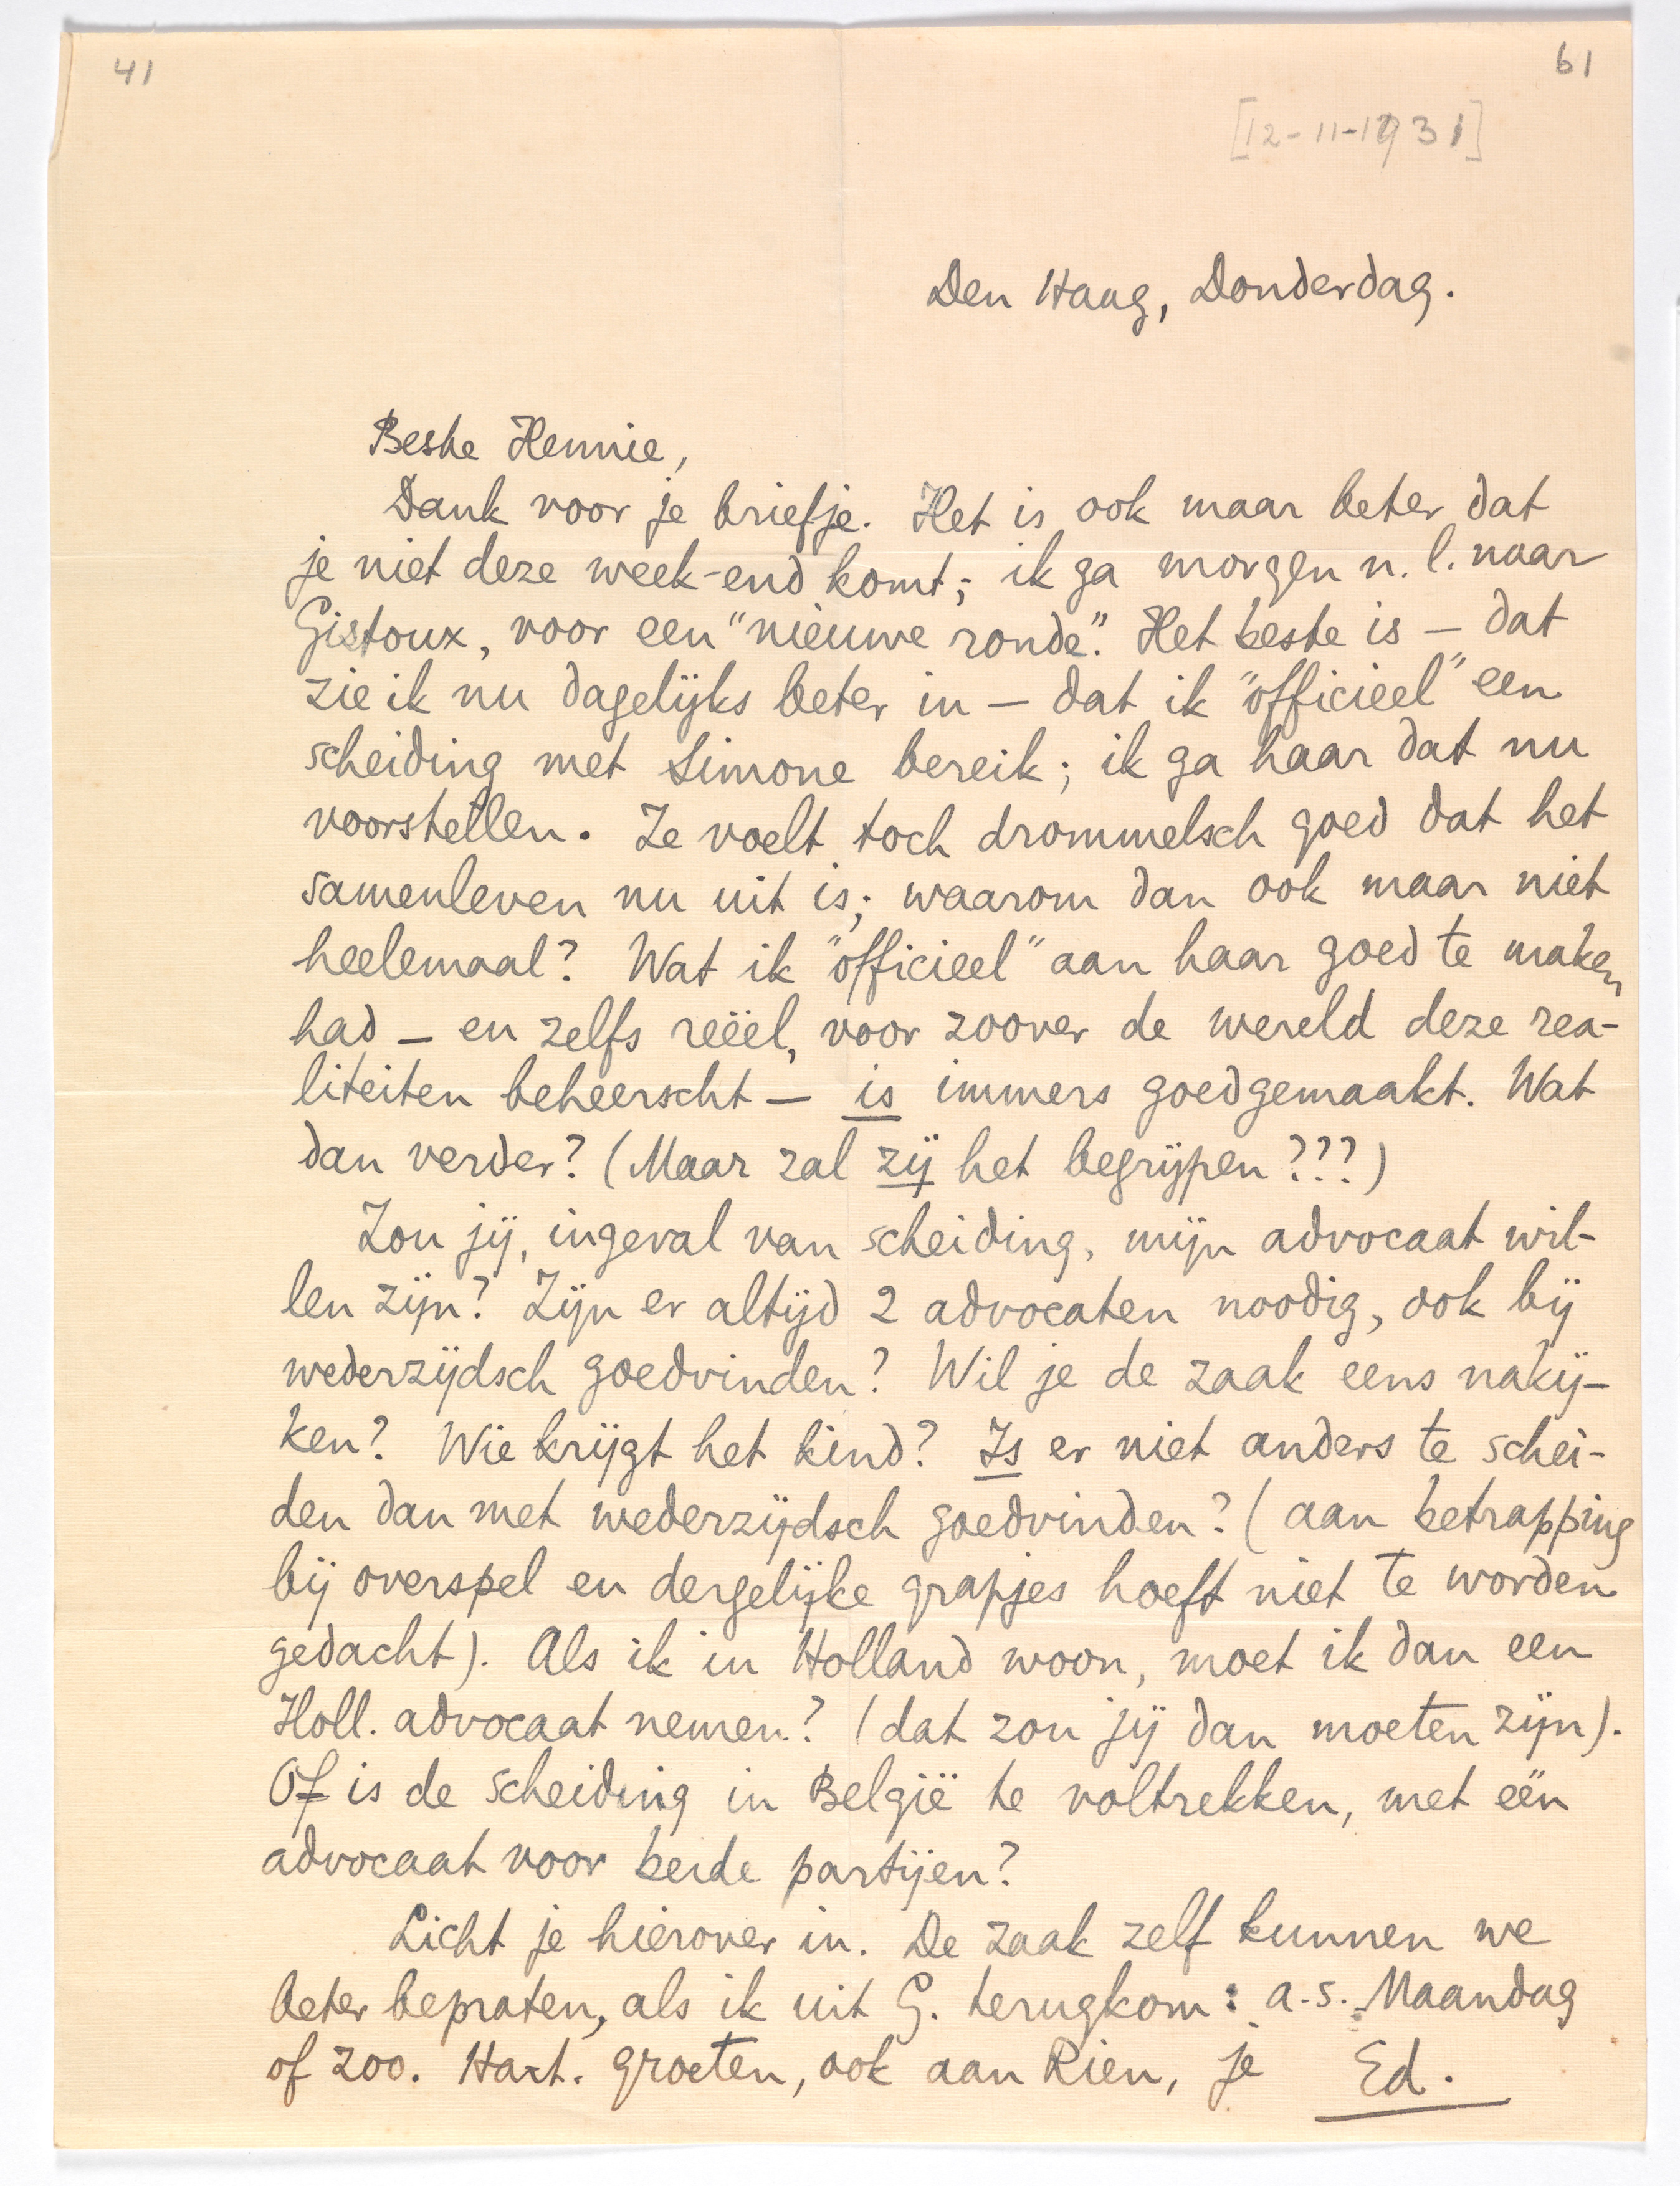 41
61
[12-11-1931]
Den Haag, Donderdag.
Beste Hennie,
Dank voor je briefje. Het is ook maar beter dat
je niet deze week-end komt; ik ga morgen n.l. naar
Gistoux, voor een "nieuwe ronde". Het beste is — dat
zie ik nu dagelijks beter in — dat ik "officieel" een
scheiding met Simone bereik; ik ga haar dat nu
voorstellen. Ze voelt toch drommelsch goed dat het
samenleven nu uit is; waarom dan ook maar niet
heelemaal? Wat ik "officieel" aan haar goed te maken
had — en zelfs reëel, voor zoover de wereld deze rea-
liteiten beheerscht — is immers goedgemaakt. Wat
dan verder? (Maar zal zij het begrijpen???)
Zou jij, ingeval van scheiding, mijn advocaat wil-
len zijn? Zijn er altijd 2 advocaten noodig, ook bij
wederzijdsch goedvinden? Wil je de zaak eens nakij-
ken? Wie krijgt het kind? Is er niet anders te schei-
den dan met wederzijdsch goedvinden? (aan betrapping
bij overspel en dergelijke grapjes hoeft niet te worden
gedacht). Als ik in Holland woon, moet ik dan een
Holl. advocaat nemen? (dat zou jij dan moeten zijn).
Of is de scheiding in België te voltrekken, met eën
advocaat voor beide partijen?
Licht je hierover in. De zaak zelf kunnen we
beter bepraten, als ik uit G. terugkom: a.s. Maandag
of zoo. Hart. groeten, ook aan Rien, je Ed.